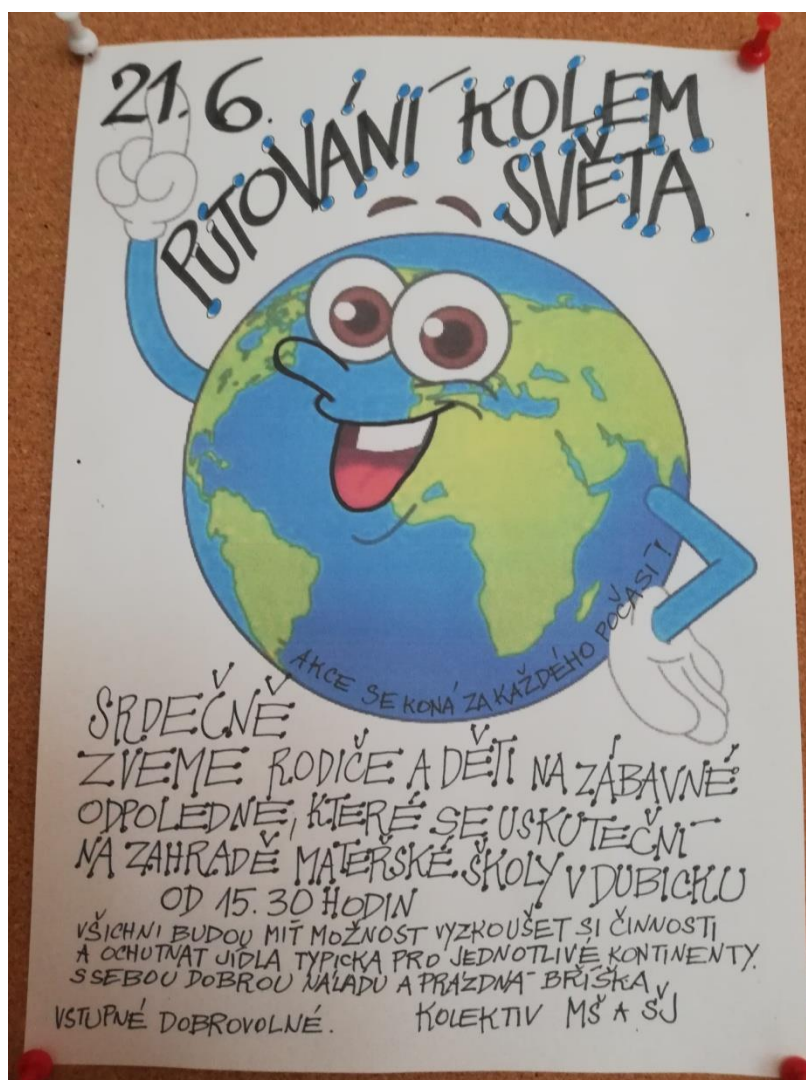 21.6.
PUTOVÁNÍ KOLEM
SVĚTA
AKCE SE KONÁ ZA KAŽDÉHO POČASÍ!
SRDEČNĚ
ZVEME RODIČE A DĚTI NA ZÁBAVNÉ
ODPOLEDNE, KTERÉ SE USKUTEČNÍ
NA ZAHRADĚ MATEŘSKÉ ŠKOLY V DUBICKU
OD 15.30 HODIN
VŠICHNI BUDOU MÍT MOŽNOST VYZKOUŠET SI ČINNOSTI
A OCHUTNAT JÍDLA TYPICKÁ PRO JEDNOTLIVÉ KONTINENTY.
S SEBOU DOBROU NÁLADU A PRÁZDNÁ BŘÍŠKA
VSTUPNÉ DOBROVOLNÉ. KOLEKTIV MŠ A ŠJ